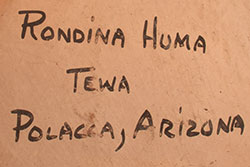 RONDINA HUMA
TEWA
POLACCA, ARIZONA